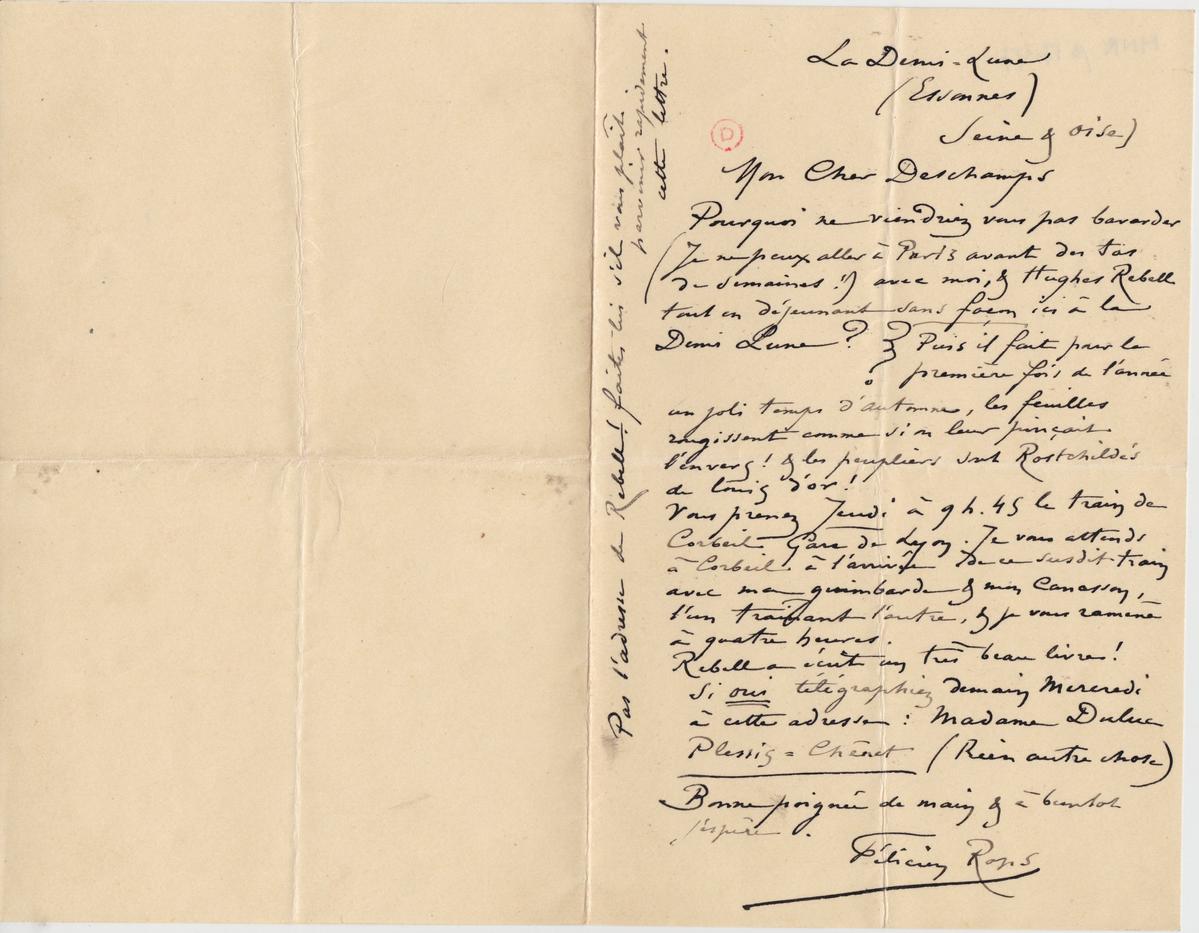 La Demi-Lune
(Essonnes)
Seine & Oise)
D
Mon Cher Deschamps
Pourquoi ne viendriez vous pas bavarder
(Je ne peux aller à Paris avant des tas
de semaines !!) avec moi, & Hughes Rebell
tout en déjeunant sans façon ici à la
Demi Lune ? Puis il fait pour la
première fois de l'année
un joli temps d'automne, les feuilles
rougissent comme si on leur pinçait
l'envers ! & les peupliers sont Rostchildés
de louis d'or !
Vous prenez Jeudi à 9 h. 45 le train de
Corbeil Gare de Lyon. Je vous attends
à Corbeil à l'arrivée de ce susdit train
avec ma guimbarde & mon Canasson,
l'un traînant l'autre, & je vous ramène
à quatre heures.
Rebell a écrit un très beau livre !
Si oui télégraphiez demain Mercredi
à cette adresse : Madame Duluc
Plessis-Chênet (Rien autre chose)
Bonne poignée de main & à bientot
j'espère.
Félicien Rops
Pas l'adresse de Rebell ! faites lui s'il vous plait
parvenir rapidement
cette lettre.